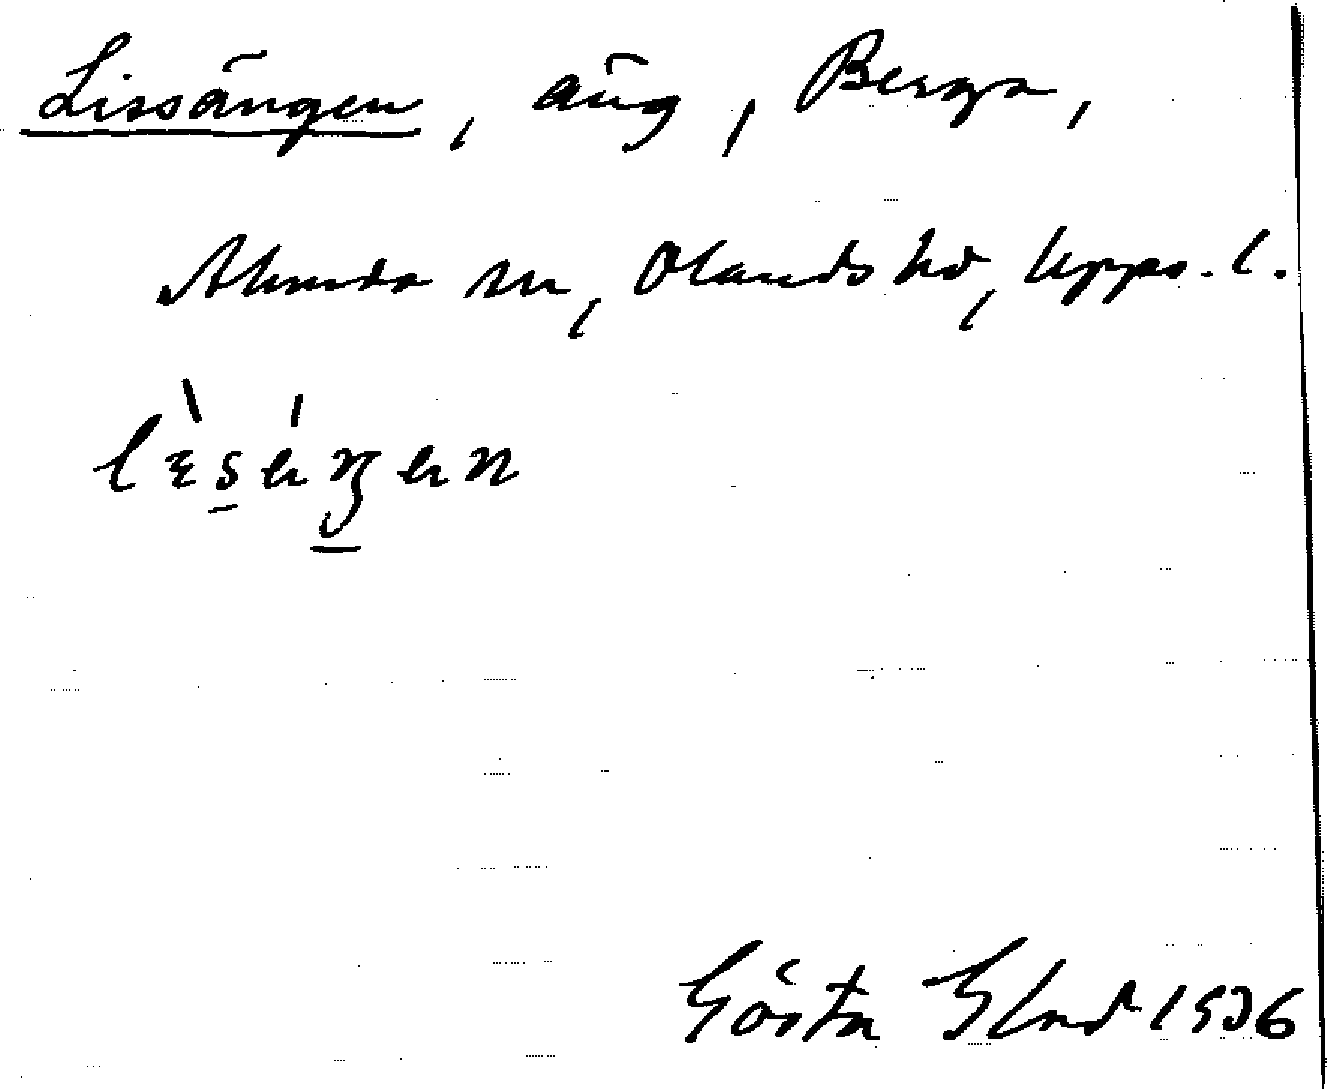 Lissängen, äng, Berga,
Alunda sn, Olands hd, Upps. l.
Gösta Elud 1936